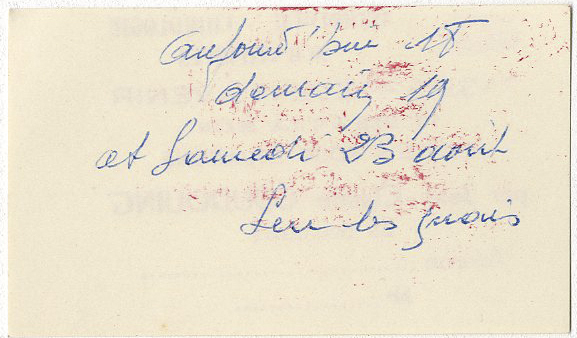 aujourd'hui 18
demain 19
et Samedi 23 aout
sur les quais